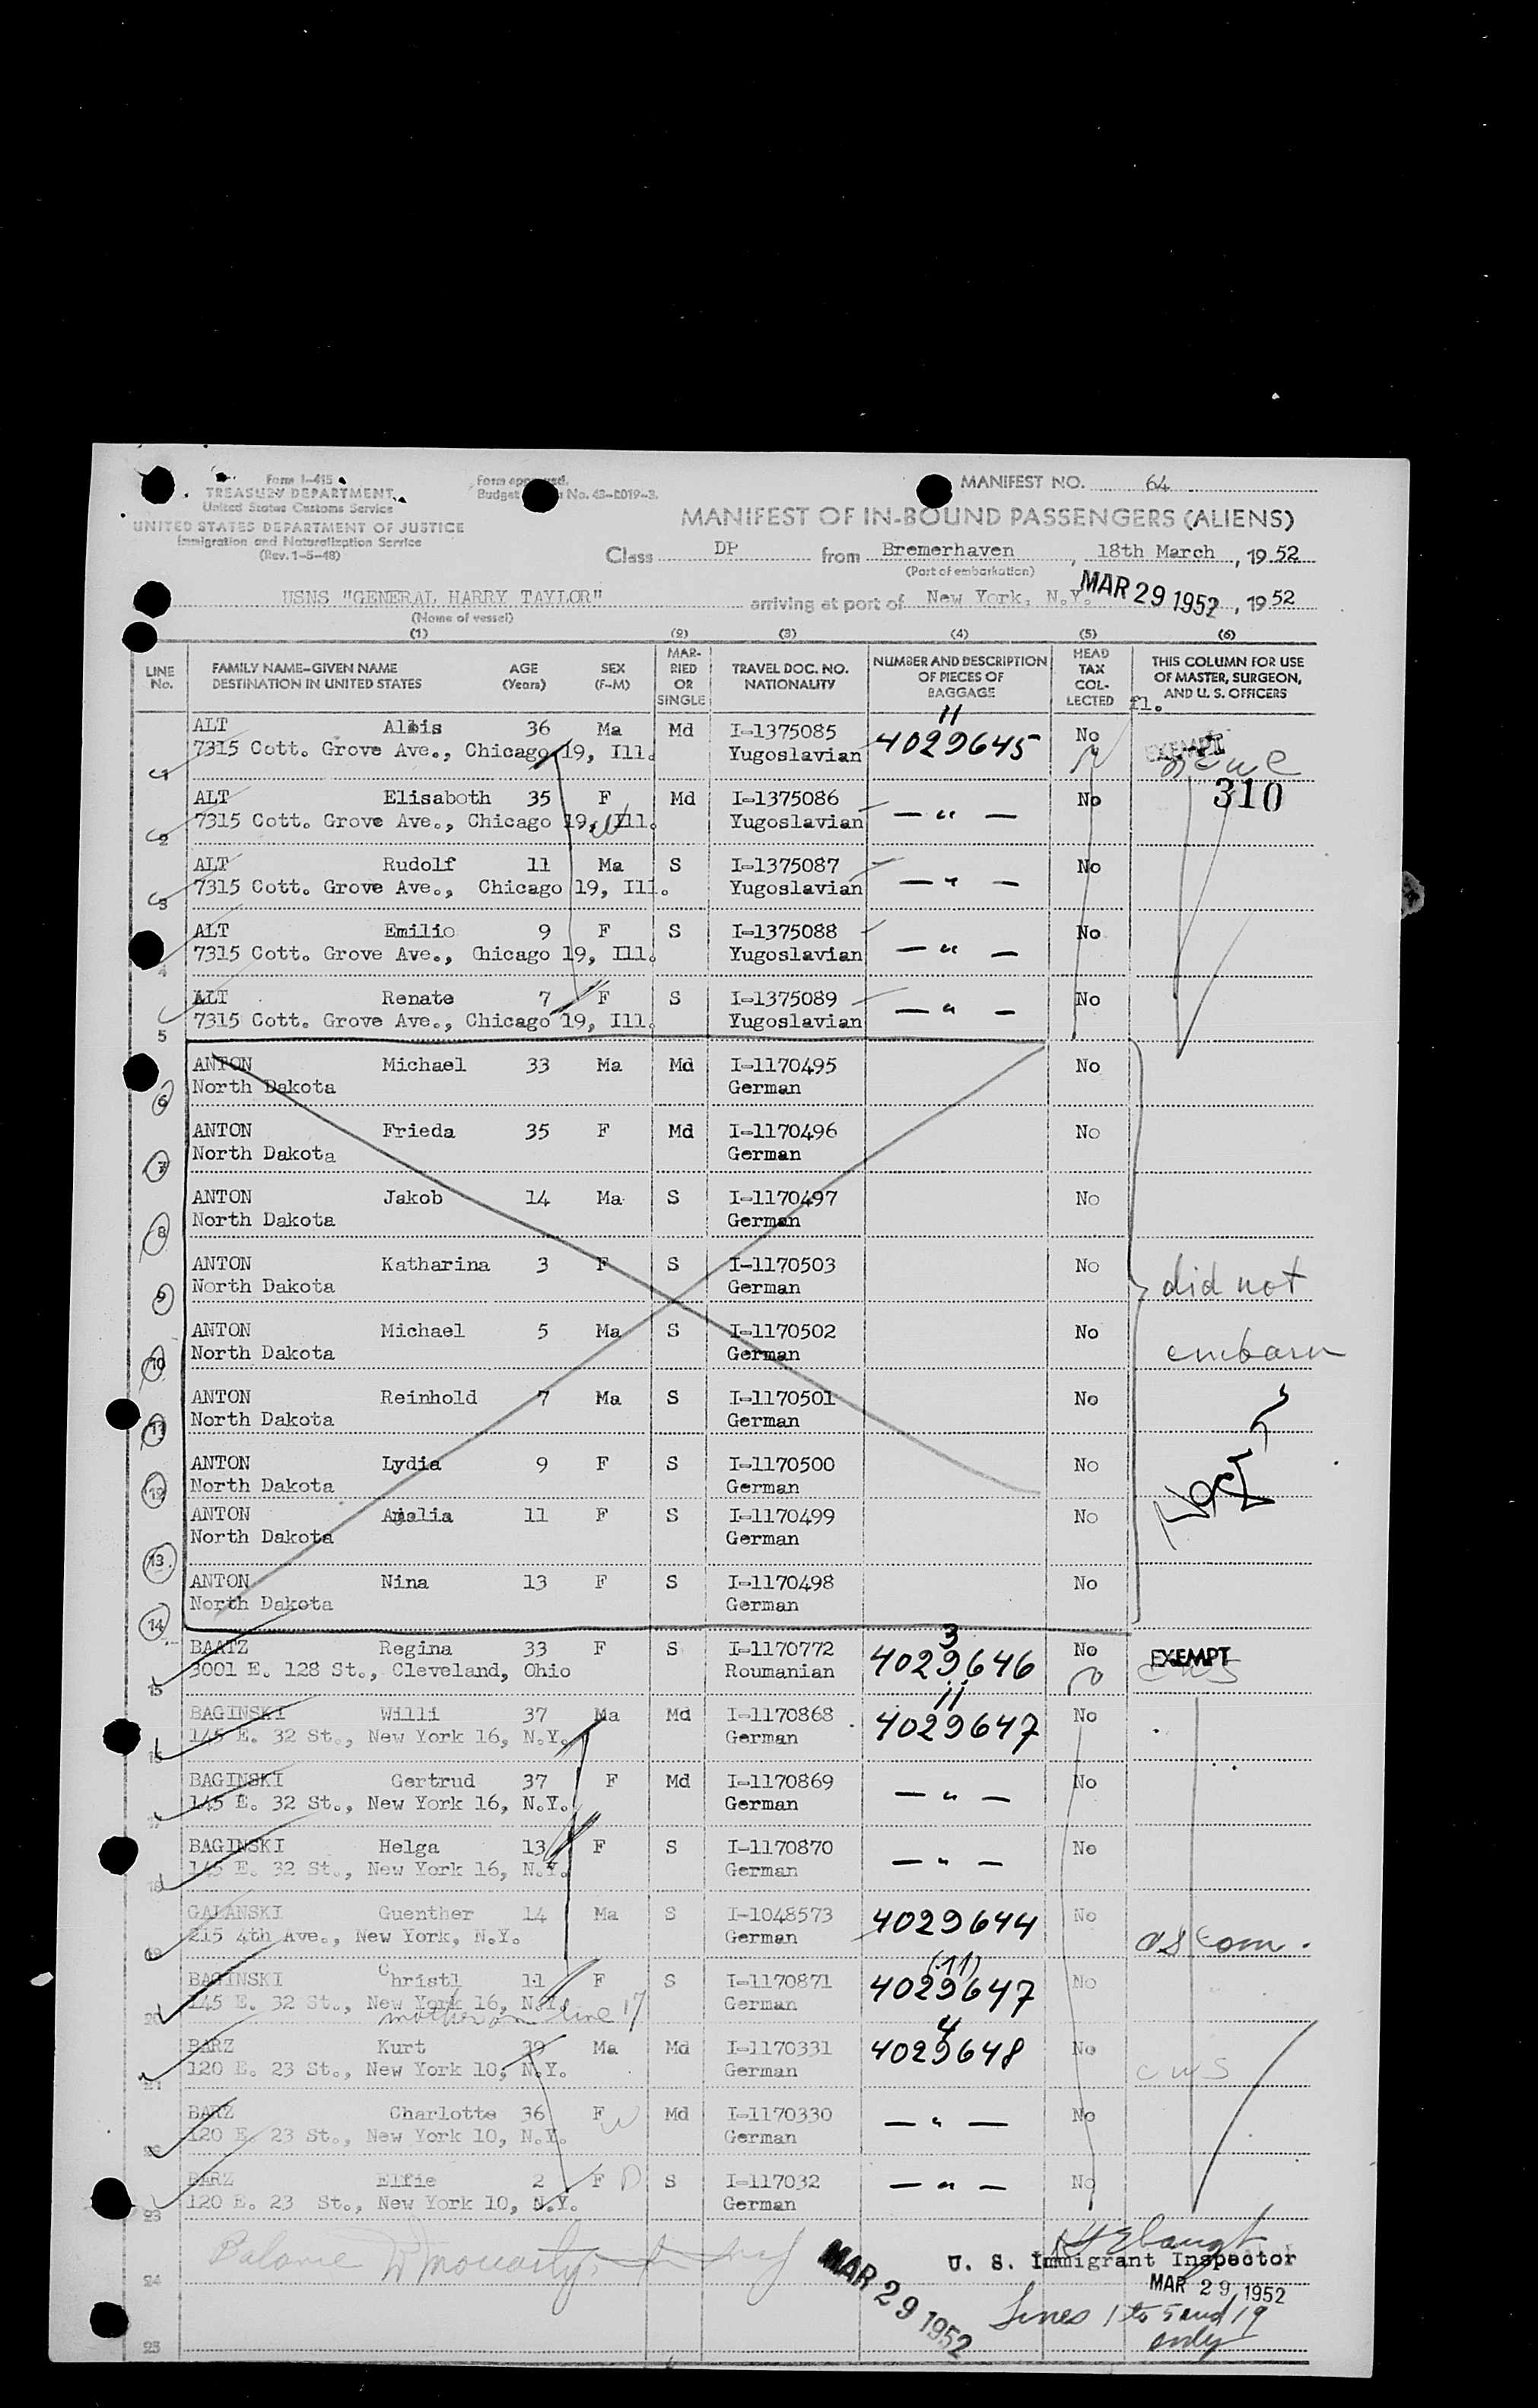 Form I-415
TREASURY DEPARTMENT
United States Customs Service
UNITED STATES DEPARTMENT OF JUSTICE
Immigration and Naturalization Service
(Rev. 1-5-48)
Form approved.
Budget No. 43-R019-3.
MANIFEST NO. 64
MANIFEST OF IN-BOUND PASSENGERS (ALIENS)
Class DP from Bremerhaven, 18th March, 1952
(Port of embarkation)
USNS "GENERAL HARRY TAYLOR" arriving at port of New York, N.Y. MAR 29 1952, 1952
(Name of vessel)
(1) (2) (3) (4) (5) (6)
LINE No. FAMILY NAME-GIVEN NAME DESTINATION IN UNITED STATES AGE (Years) SEX (F-M) MARRIED OR SINGLE TRAVEL DOC. NO. NATIONALITY NUMBER AND DESCRIPTION OF PIECES OF BAGGAGE HEAD TAX COLLECTED THIS COLUMN FOR USE OF MASTER, SURGEON, AND U. S. OFFICERS
fl.
11
1 ALT Albis 36 Ma Md I-1375085 4029645 No EXEMPT
7315 Cott. Grove Ave., Chicago 19, Ill. Yugoslavian
310
2 ALT Elisaboth 35 F Md I-1375086 — " — No
7315 Cott. Grove Ave., Chicago 19, Ill. Yugoslavian
3 ALT Rudolf 11 Ma S I-1375087 — " — No
7315 Cott. Grove Ave., Chicago 19, Ill. Yugoslavian
4 ALT Emilio 9 F S I-1375088 — " — No
7315 Cott. Grove Ave., Chicago 19, Ill. Yugoslavian
5 ALT Renate 7 F S I-1375089 — " — No
7315 Cott. Grove Ave., Chicago 19, Ill. Yugoslavian
6 ANTON Michael 33 Ma Md I-1170495 No
North Dakota German
7 ANTON Frieda 35 F Md I-1170496 No
North Dakota German
8 ANTON Jakob 14 Ma S I-1170497 No
North Dakota German
9 ANTON Katharina 3 F S I-1170503 No
North Dakota German
did not
10 ANTON Michael 5 Ma S I-1170502 No
North Dakota German
embark
11 ANTON Reinhold 7 Ma S I-1170501 No
North Dakota German
12 ANTON Lydia 9 F S I-1170500 No
North Dakota German
13 ANTON Amalia 11 F S I-1170499 No
North Dakota German
14 ANTON Nina 13 F S I-1170498 No
North Dakota German
3
15 BAATZ Regina 33 F S I-1170772 4029646 No EXEMPT
3001 E. 128 St., Cleveland, Ohio Roumanian CWS
11
16 BAGINSKI Willi 37 Ma Md I-1170868 4029647 No
145 E. 32 St., New York 16, N.Y. German
17 BAGINSKI Gertrud 37 F Md I-1170869 — " — No
145 E. 32 St., New York 16, N.Y. German
18 BAGINSKI Helga 13 F S I-1170870 — " — No
145 E. 32 St., New York 16, N.Y. German
19 GALANSKI Guenther 14 Ma S I-1048573 4029644 No
215 4th Ave., New York, N.Y. German
(11)
20 BAGINSKI Christl 11 F S I-1170871 4029647 No
145 E. 32 St., New York 16, N.Y. German
mother on line 17
4
21 BARZ Kurt 39 Ma Md I-1170331 4029648 No
120 E. 23 St., New York 10, N.Y. German CWS
22 BARZ Charlotte 36 F W Md I-1170330 — " — No
120 E. 23 St., New York 10, N.Y. German
23 BARZ Elfie 2 F D S I-117032 — " — No
120 E. 23 St., New York 10, N.Y. German
24 Balance
U. S. Immigrant Inspector
MAR 29 1952
MAR 29 1952
Lines 1 to 5 and 19
only
25